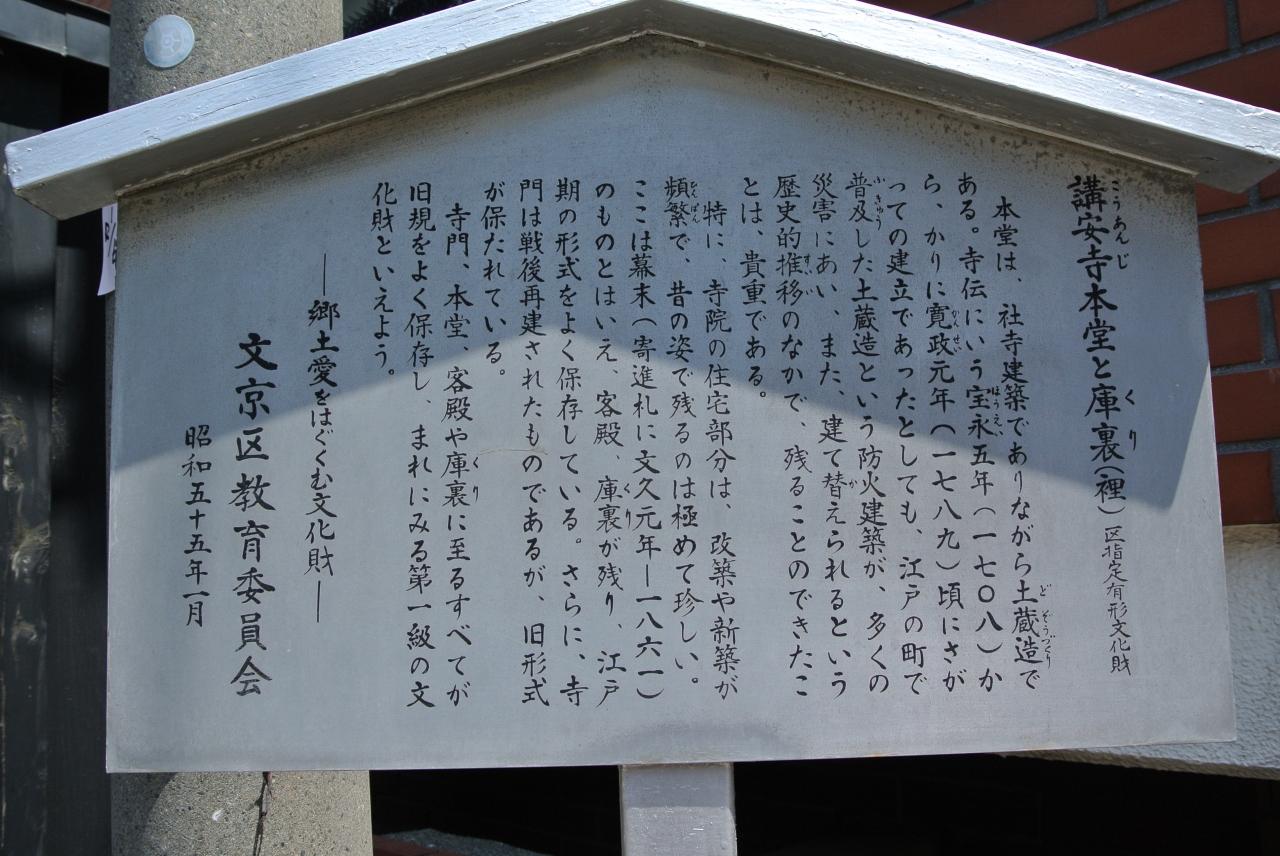 講安寺本堂と庫裏(裡) 区指定有形文化財
本堂は、社寺建築でありながら土蔵造で
ある。寺伝にいう宝永五年(一七〇八)か
ら、かりに寛政元年(一七八九)頃にさが
っての建立であったとしても、江戸の町で
普及した土蔵造という防火建築が、多くの
災害にあい、また、建て替えられるという
歴史的推移のなかで、残ることのできたこ
とは、貴重である。
特に、寺院の住宅部分は、改築や新築が
頻繁で、昔の姿で残るのは極めて珍しい。
ここは幕末(寄進札に文久元年—一八六一)
のものとはいえ、客殿、庫裏が残り、江戸
期の形式をよく保存している。さらに、寺
門は戦後再建されたものであるが、旧形式
が保たれている。
寺門、本堂、客殿や庫裏に至るすべてが
旧規をよく保存し、まれにみる第一級の文
化財といえよう。
—郷土愛をはぐくむ文化財—
文京区教育委員会
昭和五十五年一月